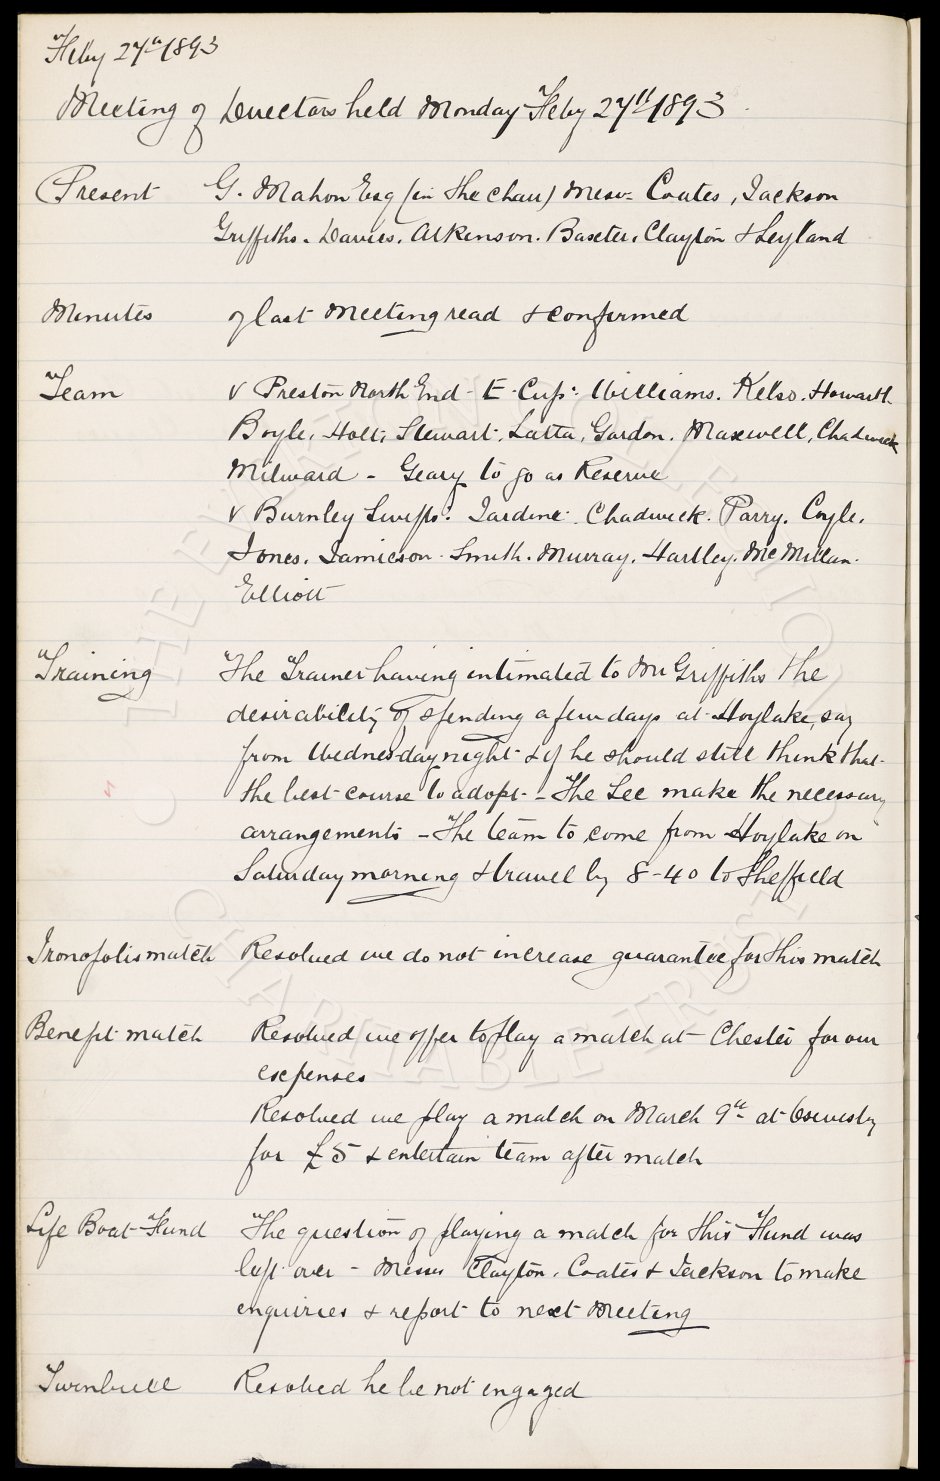 Feby 27th 1893
Meeting of Directors held Monday Feby 27th 1893
Present G. Mahon Esq (in the chair) Messrs Coates, Jackson
Griffiths. Davies. Atkinson. Baxter, Clayton & Leyland
Minutes of last Meeting read & confirmed
Team v Preston North End - E. Cup: Williams. Kelso. Howarth.
Boyle, Holt, Stewart, Latta, Gordon. Maxwell, Chadwick
Milward - Geary to go as Reserve
v Burnley Swifts: Jardine. Chadwick. Parry. Coyle.
Jones. Jamieson. Smith. Murray. Hartley. McMillan.
Elliott
Training The Trainer having intimated to Mr Griffiths the
desirability of spending a few days at Hoylake, say
from Wednesday night & if he should still think that
the best course to adopt - The Sec make the necessary
arrangements - The team to come from Hoylake on
Saturday morning & travel by 8-40 to Sheffield
Ironopolis match Resolved we do not increase guarantee for this match
Benefit match Resolved we offer to play a match at Chester for our
expenses
Resolved we play a match on March 9th at Oswestry
for £5 & entertain team after match
Life Boat Fund The question of playing a match for this Fund was
left over - Messrs Clayton, Coates & Jackson to make
enquiries & report to next Meeting
Turnbull Resolved he be not engaged
THE EVERTON COLLECTION
CHARITABLE TRUST